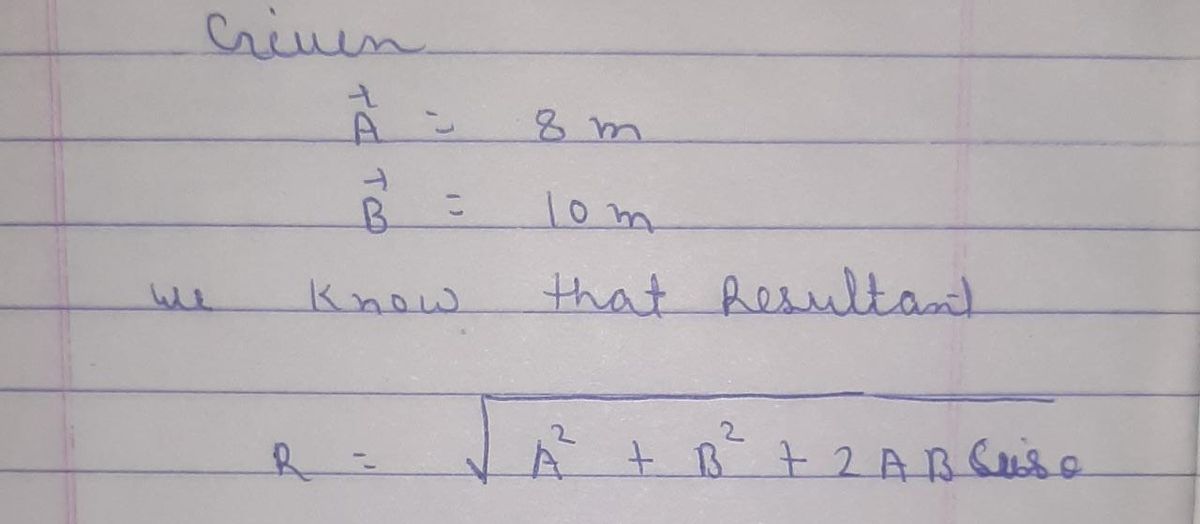 Given
A⃗ = 8 m
B⃗ = 10 m
we Know that Resultant
R = √A² + B² + 2 A B